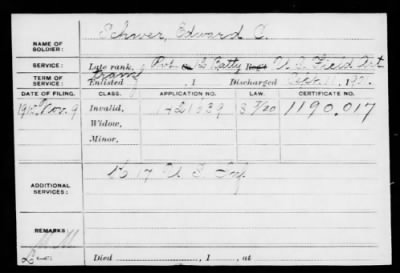 NAME OF SOLDIER: Schwer, Edward C.
SERVICE: Late rank, Pvt Batty Reg't U S Field Art
TERM OF SERVICE: Enlisted , 1 Discharged Sept 11, 190
DATE OF FILING. CLASS. APPLICATION NO. LAW. CERTIFICATE NO.
Nov. 9 Invalid, 1421639 1190.017
Widow,
Minor,
ADDITIONAL SERVICES: 17 U S Inf
REMARKS:
Died , 1 , at